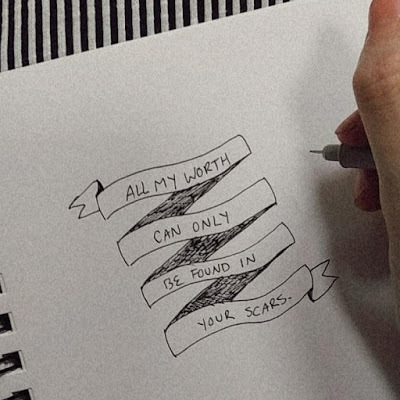 ALL MY WORTH
CAN ONLY
BE FOUND IN
YOUR SCARS.